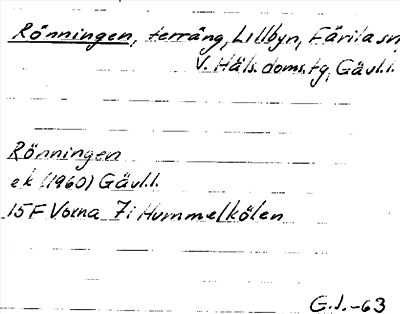 Rönningen, terräng, Lillbyn, Färila sn,
V. Häls. doms. tg, Gävl.l.
Rönningen
ek (1960) Gävl.l.
15F Voxna 7i Hummelkölen
G.J.-63